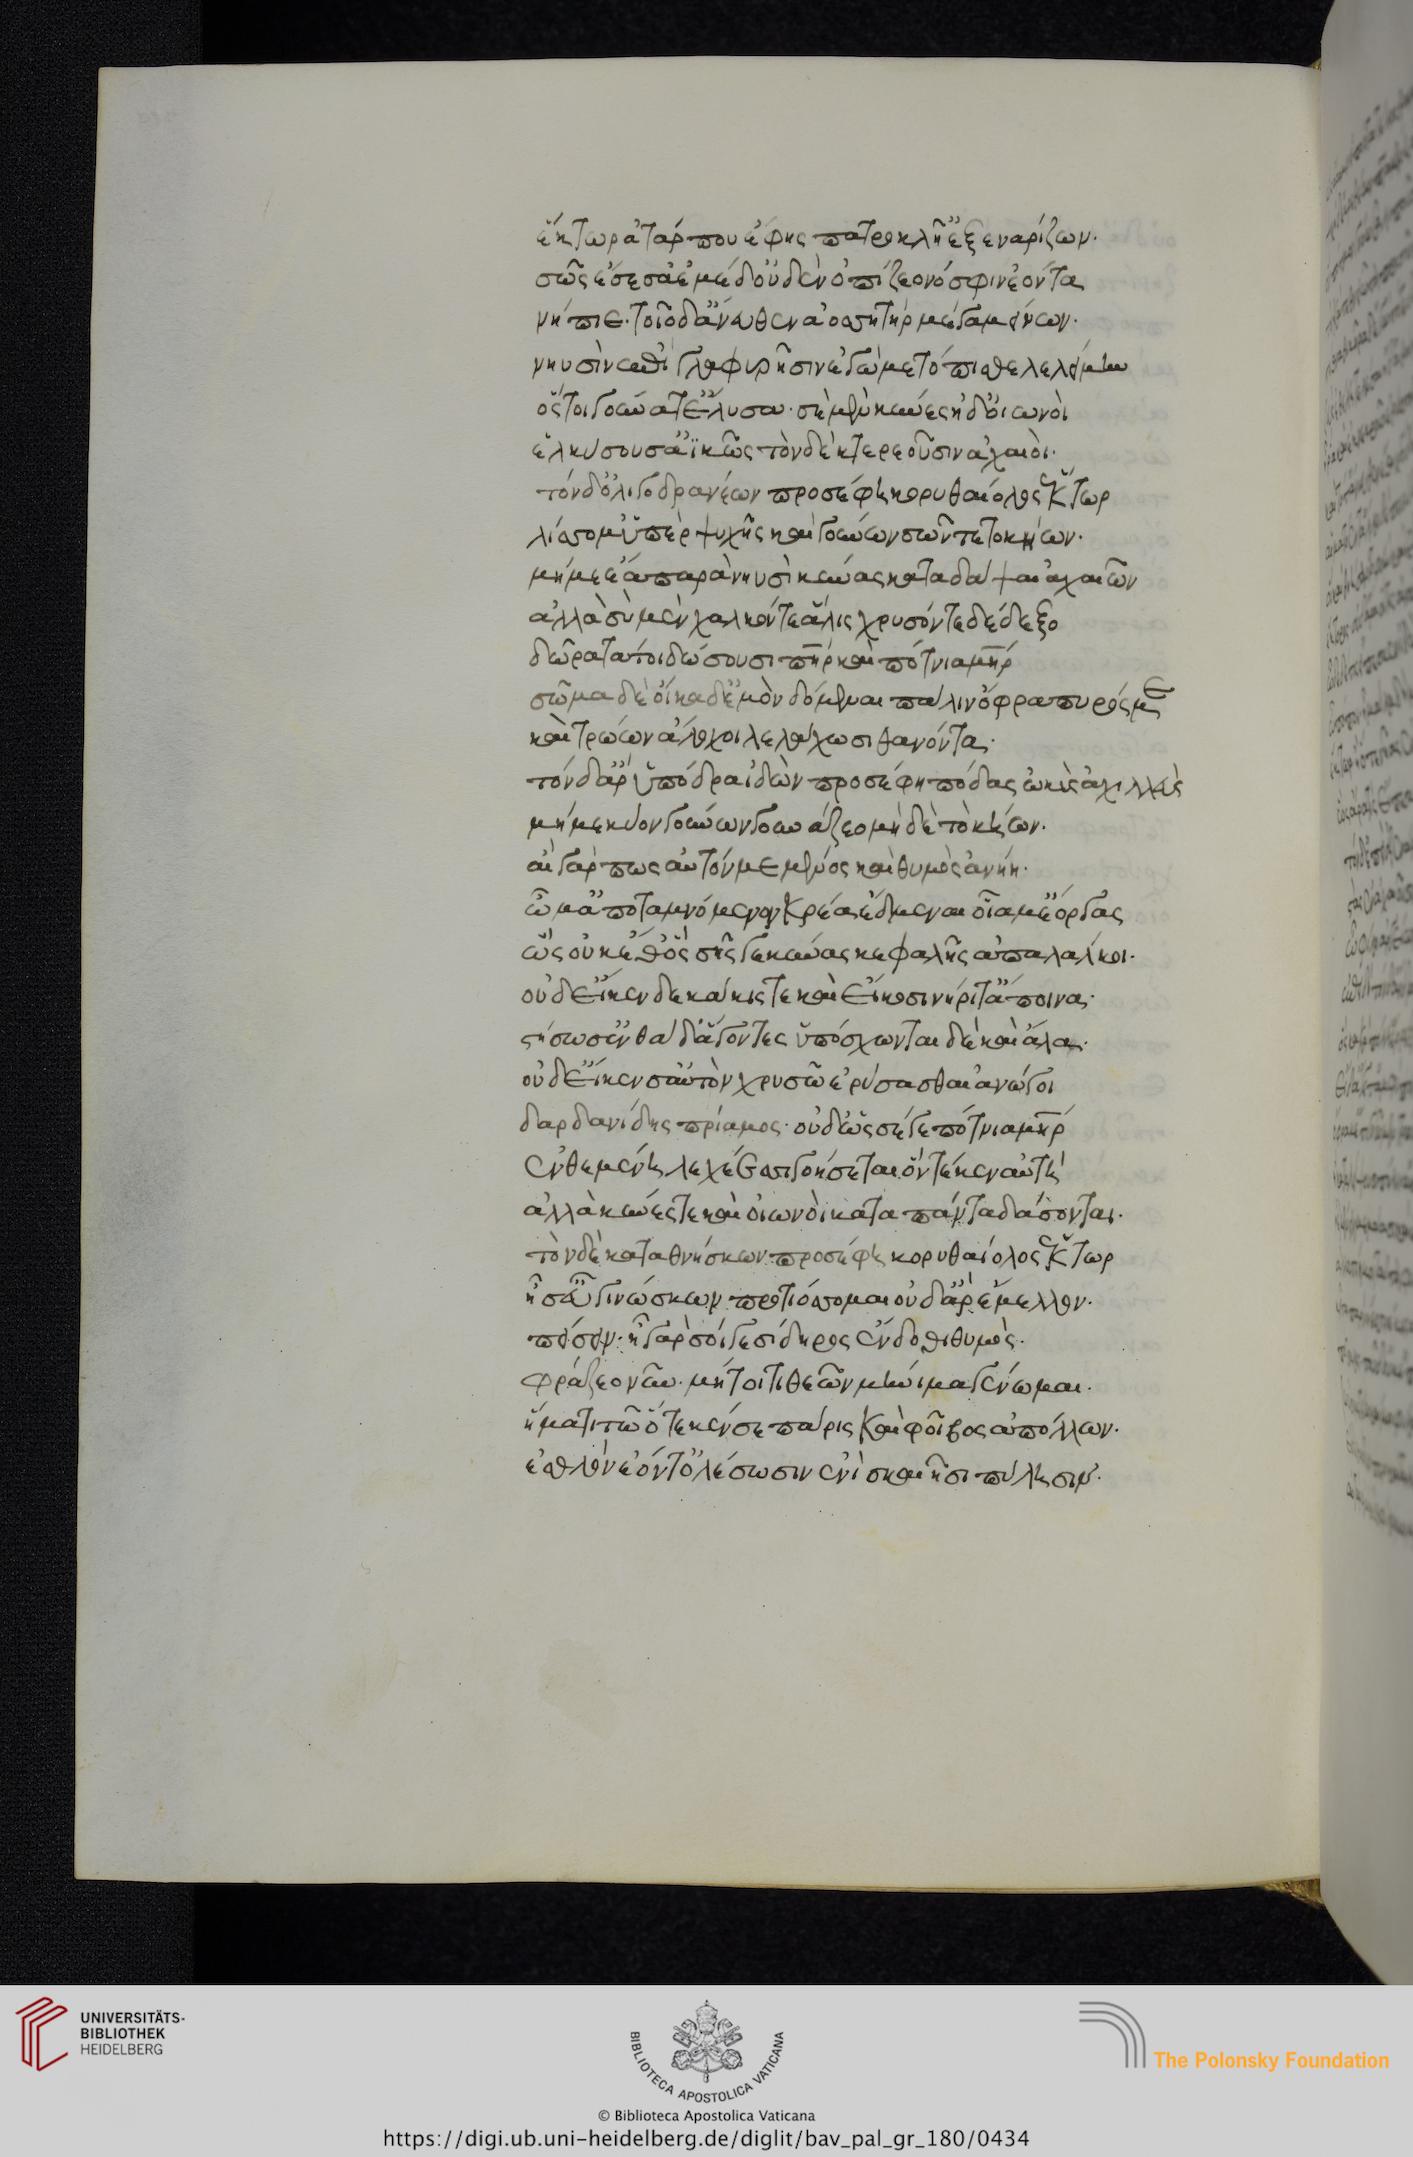 ἕκτωρ ἀτάρ που ἔφης πατροκλῆ ἐξεναρίζων·
σῶς ἔσεσθ' ἐμὲ δ' οὐδὲν ὀπίζεο νόσφιν ἐόντα
νήπιε· τοῖο δ' ἄνευθεν ἀοσσητὴρ μέγ' ἀμείνων·
νηυσὶν ἐπὶ γλαφυρῆσιν ἐγὼ μετόπισθε λελείμμην
ὅς τοι γούνατ' ἔλυσα· σὲ μὲν κύνες ἠδ' οἰωνοὶ
ἑλκύσουσ' ἀϊκῶς τὸν δὲ κτερεοῦσιν ἀχαιοί·
τὸν δ' ὀλιγοδρανέων προσέφη κορυθαίολος ἕκτωρ
λίσσομ' ὑπὲρ ψυχῆς καὶ γούνων σῶν τε τοκήων·
μή με ἔα παρὰ νηυσὶ κύνας καταδάψαι ἀχαιῶν
ἀλλὰ σὺ μὲν χαλκόν τε ἅλις χρυσόν τε δέδεξο
δῶρα τά τοι δώσουσι πηρ καὶ πότνια μηρ
σῶμα δὲ οἴκαδ' ἐμὸν δόμεναι πάλιν ὄφρα πυρός με
καὶ τρώων ἄλοχοι λελάχωσι θανόντα·
τὸν δ' ἄρ' ὑπόδρα ἰδὼν προσέφη πόδας ὠκὺς ἀχιλλεὺς
μή με κύον γούνων γουνάζεο μὴ δὲ τοκήων·
αἲ γάρ πως αὐτόν με μένος καὶ θυμὸς ἀνήη·
ὤμ' ἀποταμνόμενον κρέα ἔδμεναι οἷά μ' ἔοργας
ὡς οὐκ ἔσθ' ὃς σῆς γε κύνας κεφαλῆς ἀπαλάλκοι·
οὐδ' εἴ κεν δεκάκις τε καὶ εἰκοσινήριτ' ἄποινα·
στήσωσ' ἐνθάδ' ἄγοντες ὑπόσχωνται δὲ καὶ ἄλλα·
οὐδ' εἴ κεν σ' αὐτὸν χρυσῶ ἐρύσασθαι ἀνώγοι
δαρδανίδης πρίαμος· οὐδ' ὧς σέ γε πότνια μηρ
ἐνθεμένη λεχέεσσι γοήσεται ὅν τέκεν αὐτή
ἀλλὰ κύνες τε καὶ οἰωνοὶ κατὰ πάντα δάσονται·
τὸν δὲ καταθνήσκων προσέφη κορυθαίολος ἕκτωρ
ἦ σ' εὖ γινώσκων προτιόσσομαι οὐδ' ἄρ' ἔμελλον·
πείσειν· ἦ γὰρ σοί γε σίδηρος ἔνδοθι θυμός·
φράζεο νῦν· μή τοί τι θεῶν μήνιμα γένωμαι·
ἤματι τῶ ὅτε κέν σε πάρις καὶ φοῖβος ἀπόλλων·
ἐσθλὸν ἐόντ' ὀλέσωσιν ἐνὶ σκαιῆσι πύλησιν·
UNIVERSITÄTS-
BIBLIOTHEK
HEIDELBERG
BIBLIOTECA APOSTOLICA VATICANA
The Polonsky Foundation
© Biblioteca Apostolica Vaticana
https://digi.ub.uni-heidelberg.de/diglit/bav_pal_gr_180/0434